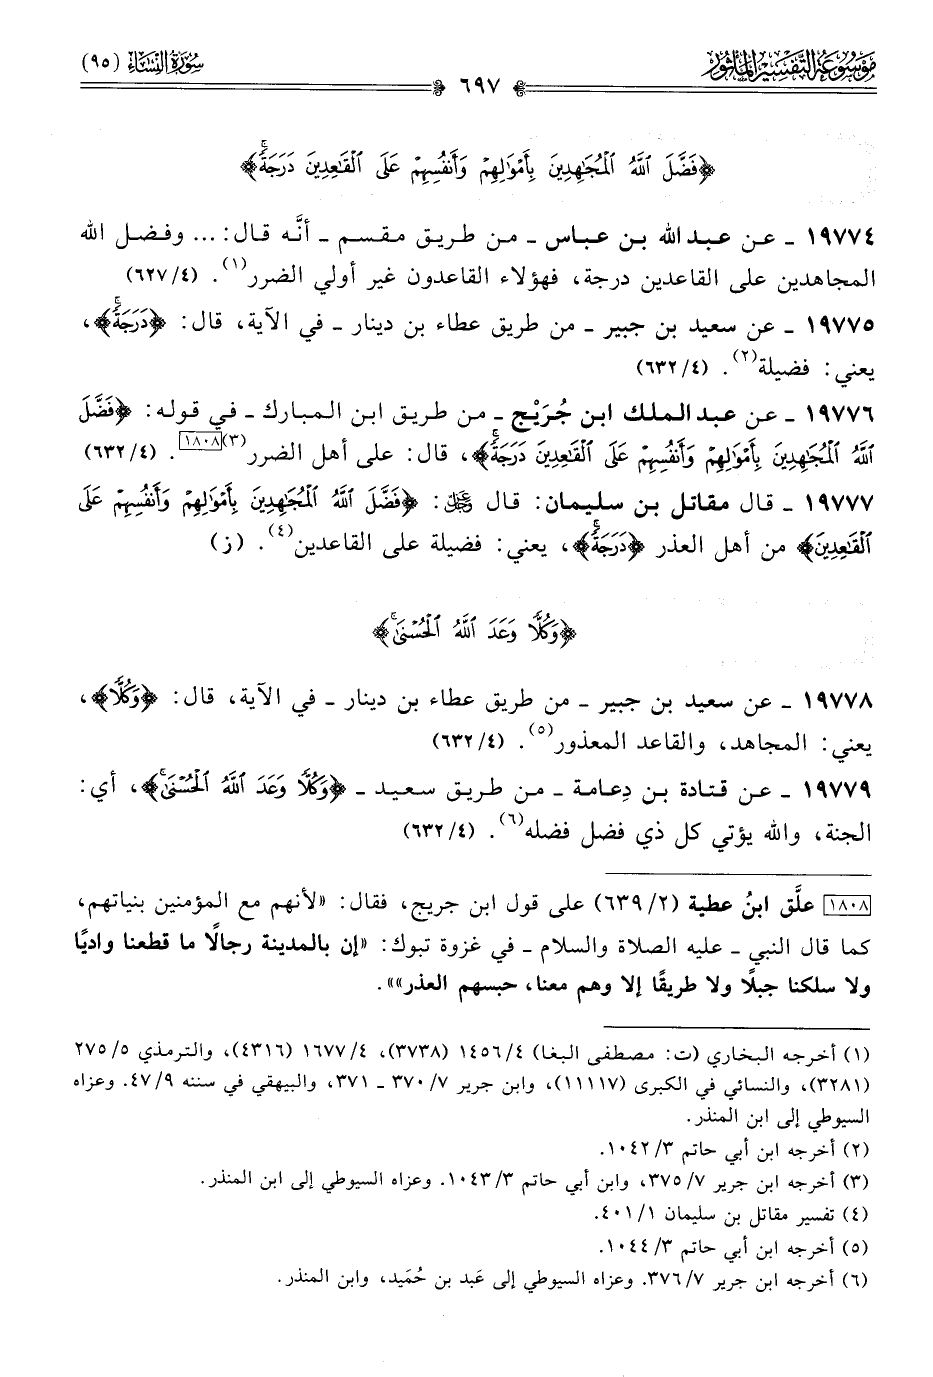 مَوْسُوعَةُ التَّفْسِيرِ الْمَأْثُورِ
سُورَةُ النِّسَاءِ (٩٥)
٦٩٧
﴿فَضَّلَ ٱللَّهُ ٱلْمُجَٰهِدِينَ بِأَمْوَٰلِهِمْ وَأَنفُسِهِمْ عَلَى ٱلْقَٰعِدِينَ دَرَجَةًۚ﴾
١٩٧٧٤ ـ عن عبد الله بن عباس ـ من طريق مقسم ـ أنَّه قال: ... وفضل الله
المجاهدين على القاعدين درجة، فهؤلاء القاعدون غير أولي الضرر(١). (٤/٦٢٧)
١٩٧٧٥ ـ عن سعيد بن جبير ـ من طريق عطاء بن دينار ـ في الآية، قال: ﴿دَرَجَةًۚ﴾،
يعني: فضيلة(٢). (٤/٦٣٢)
١٩٧٧٦ ـ عن عبد الملك ابن جُرَيْج ـ من طريق ابن المبارك ـ في قوله: ﴿فَضَّلَ
ٱللَّهُ ٱلْمُجَٰهِدِينَ بِأَمْوَٰلِهِمْ وَأَنفُسِهِمْ عَلَى ٱلْقَٰعِدِينَ دَرَجَةًۚ﴾، قال: على أهل الضرر(٣)[١٨٠٨]. (٤/٦٣٢)
١٩٧٧٧ ـ قال مقاتل بن سليمان: قال ﷻ: ﴿فَضَّلَ ٱللَّهُ ٱلْمُجَٰهِدِينَ بِأَمْوَٰلِهِمْ وَأَنفُسِهِمْ عَلَى
ٱلْقَٰعِدِينَ﴾ من أهل العذر ﴿دَرَجَةًۚ﴾، يعني: فضيلة على القاعدين(٤). (ز)
﴿وَكُلًّا وَعَدَ ٱللَّهُ ٱلْحُسْنَىٰۚ﴾
١٩٧٧٨ ـ عن سعيد بن جبير ـ من طريق عطاء بن دينار ـ في الآية، قال: ﴿وَكُلًّا﴾،
يعني: المجاهد، والقاعد المعذور(٥). (٤/٦٣٢)
١٩٧٧٩ ـ عن قتادة بن دِعامة ـ من طريق سعيد ـ ﴿وَكُلًّا وَعَدَ ٱللَّهُ ٱلْحُسْنَىٰۚ﴾، أي:
الجنة، والله يؤتي كل ذي فضل فضله(٦). (٤/٦٣٢)
[١٨٠٨] علَّق ابنُ عطية (٢/٦٣٩) على قول ابن جريج، فقال: «لأنهم مع المؤمنين بنياتهم،
كما قال النبي ـ عليه الصلاة والسلام ـ في غزوة تبوك: «إن بالمدينة رجالًا ما قطعنا واديًا
ولا سلكنا جبلًا ولا طريقًا إلا وهم معنا، حبسهم العذر»».
(١) أخرجه البخاري (ت: مصطفى البغا) ٤/١٤٥٦ (٣٧٣٨)، ٤/١٦٧٧ (٤٣١٦)، والترمذي ٥/٢٧٥
(٣٢٨١)، والنسائي في الكبرى (١١١١٧)، وابن جرير ٧/٣٧٠ ـ ٣٧١، والبيهقي في سننه ٩/٤٧. وعزاه
السيوطي إلى ابن المنذر.
(٢) أخرجه ابن أبي حاتم ٣/١٠٤٢.
(٣) أخرجه ابن جرير ٧/٣٧٥، وابن أبي حاتم ٣/١٠٤٣. وعزاه السيوطي إلى ابن المنذر.
(٤) تفسير مقاتل بن سليمان ١/٤٠١.
(٥) أخرجه ابن أبي حاتم ٣/١٠٤٤.
(٦) أخرجه ابن جرير ٧/٣٧٦. وعزاه السيوطي إلى عَبد بن حُمَيد، وابن المنذر.